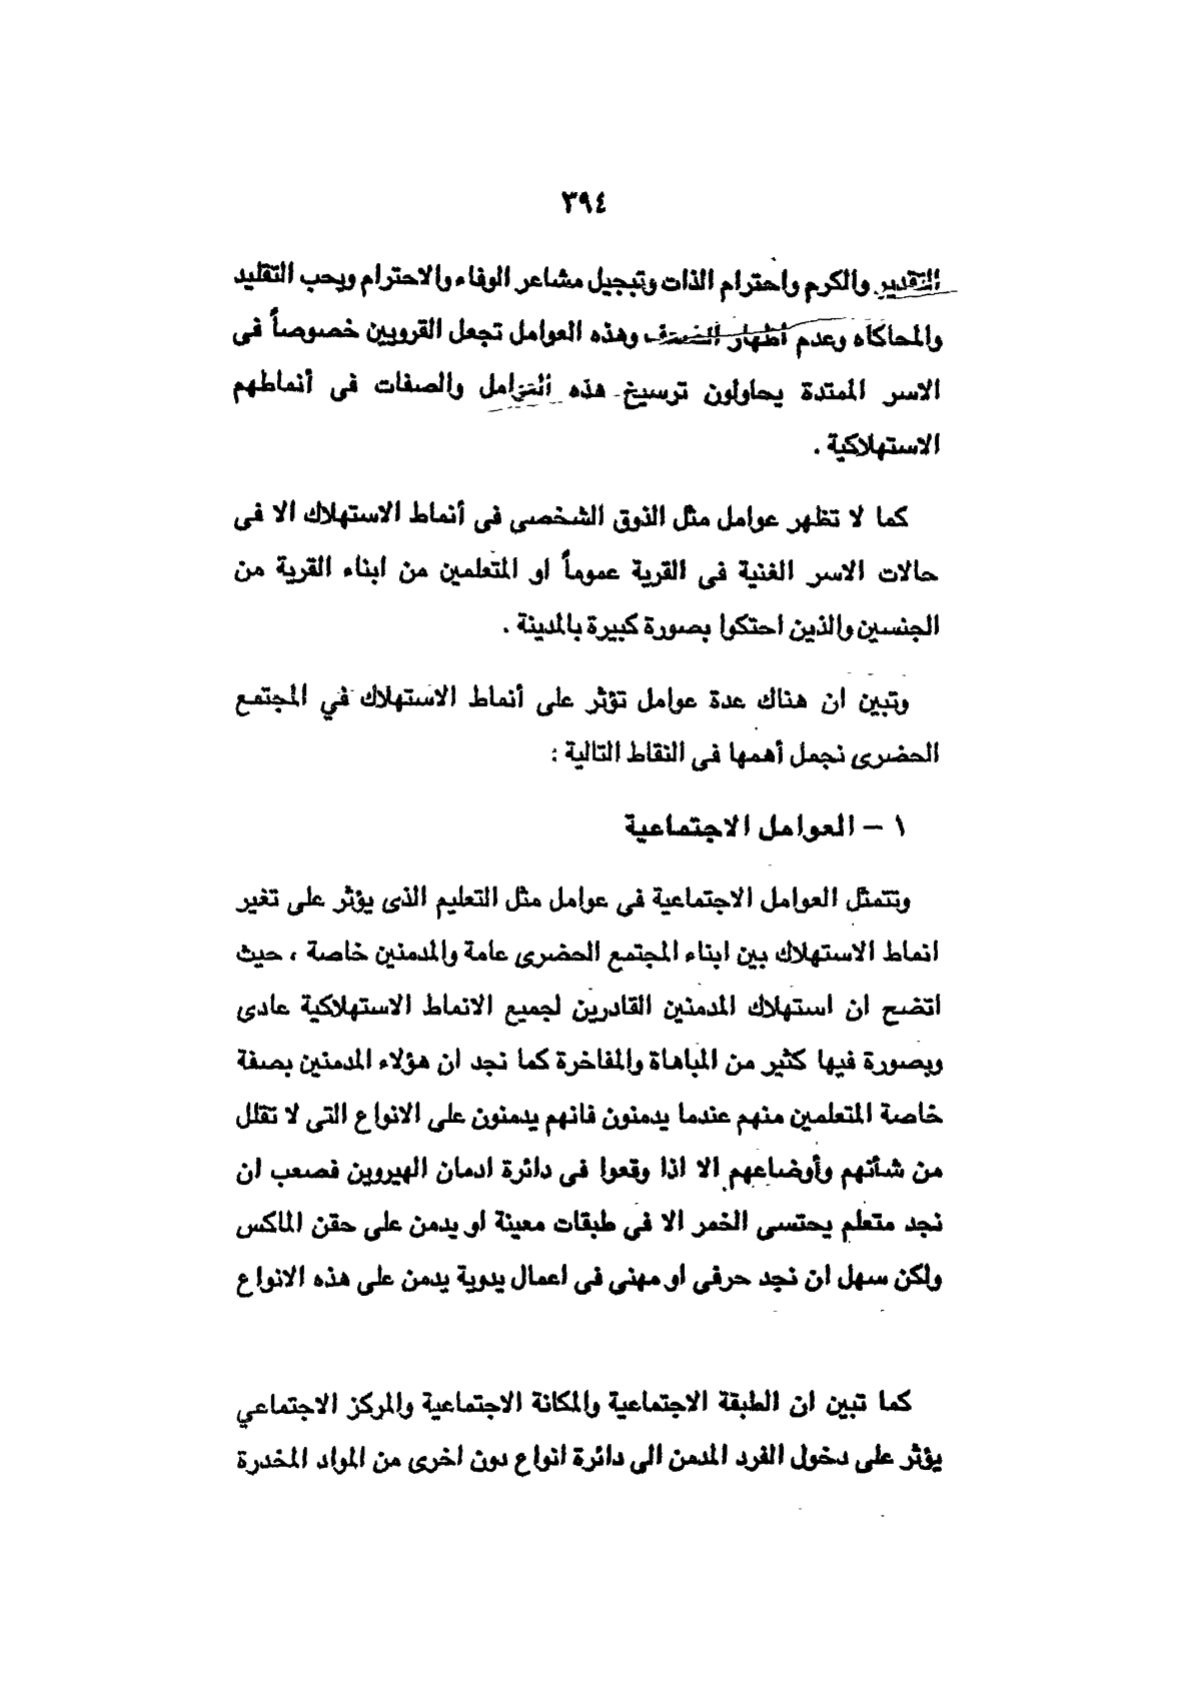 ٣٩٤
التقدير والكرم واحترام الذات وتبجيل مشاعر الوفاء والاحترام ويحب التقليد
والمحاكاه وعدم أظهار الضعف وهذه العوامل تجعل القرويين خصوصاً فى
الاسر الممتدة يحاولون ترسيخ هذه العوامل والصفات فى أنماطهم
الاستهلاكية .
كما لا تظهر عوامل مثل الذوق الشخصى فى أنماط الاستهلاك الا فى
حالات الاسر الغنية فى القرية عموماً او المتعلمين من ابناء القرية من
الجنسين والذين احتكوا بصورة كبيرة بالمدينة .
وتبين ان هناك عدة عوامل تؤثر على أنماط الاستهلاك في المجتمع
الحضرى نجمل أهمها فى النقاط التالية :
١ – العوامل الاجتماعية
وتتمثل العوامل الاجتماعية فى عوامل مثل التعليم الذى يؤثر على تغير
انماط الاستهلاك بين ابناء المجتمع الحضرى عامة والمدمنين خاصة ، حيث
اتضح ان استهلاك المدمنين القادرين لجميع الانماط الاستهلاكية عادى
وبصورة فيها كثير من المباهاة والمفاخرة كما نجد ان هؤلاء المدمنين بصفة
خاصة المتعلمين منهم عندما يدمنون فانهم يدمنون على الانواع التى لا تقلل
من شأنهم وأوضاعهم الا اذا وقعوا فى دائرة ادمان الهيروين فصعب ان
نجد متعلم يحتسى الخمر الا فى طبقات معينة او يدمن على حقن الماكس
ولكن سهل ان نجد حرفى او مهنى فى اعمال يدوية يدمن على هذه الانواع
كما تبين ان الطبقة الاجتماعية والمكانة الاجتماعية والمركز الاجتماعي
يؤثر على دخول الفرد المدمن الى دائرة انواع دون اخرى من المواد المخدرة